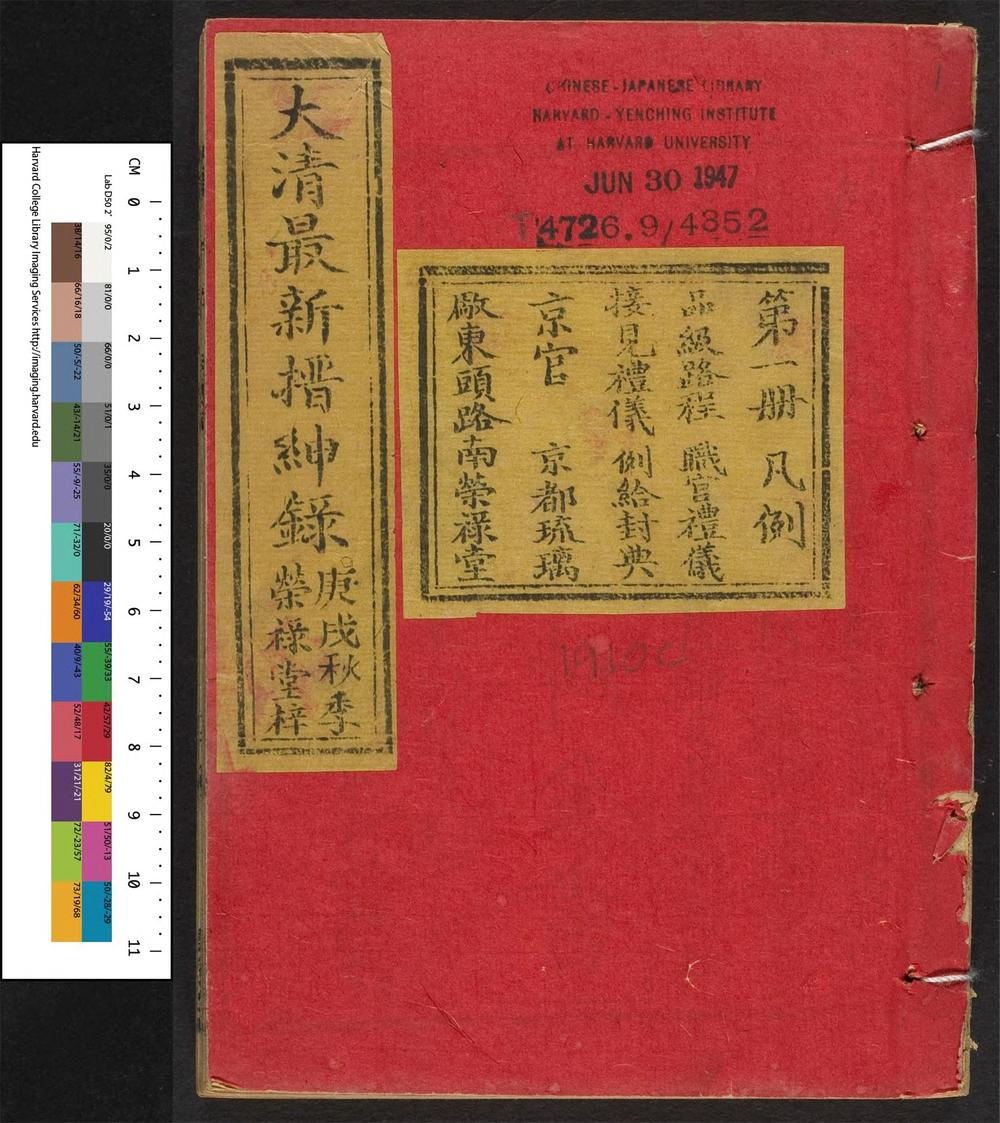 CHINESE-JAPANESE LIBRARY
HARVARD-YENCHING INSTITUTE
AT HARVARD UNIVERSITY
JUN 30 1947
T4726.9/4352
1
第一册 凡例
品級路程 職官禮儀
接見禮儀 例給封典
京官 京都琉璃
廠東頭路南榮祿堂
大清最新搢紳錄
庚戌秋季
榮祿堂梓
1910c
Harvard College Library Imaging Services http://imaging.harvard.edu
Lab D50 2°
CM 0 1 2 3 4 5 6 7 8 9 10 11
38/14/16 95/0/2
66/16/18 81/0/0
50/-5/-22 66/0/0
43/-14/21 51/0/1
55/-9/-25 35/0/0
71/-32/0 20/0/0
62/34/60 29/19/-54
40/9/-43 55/-39/33
52/48/17 42/57/29
31/21/-21 82/4/79
72/-23/57 51/50/-13
73/19/68 50/-28/-29